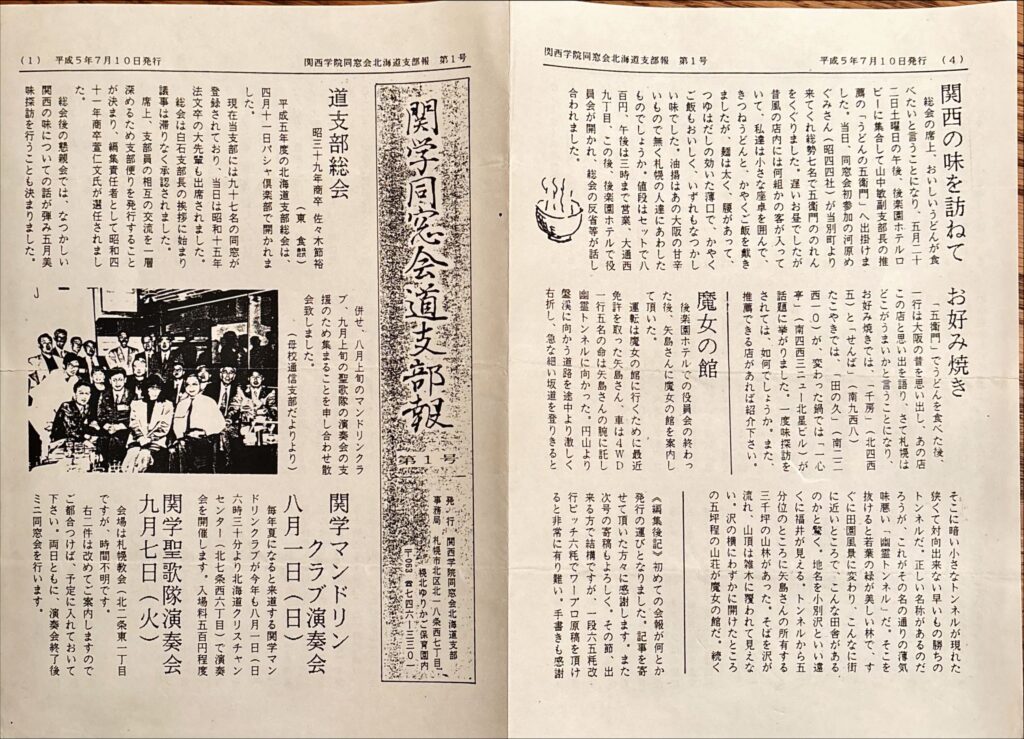 (1) 平成5年7月10日発行 関西学院同窓会北海道支部報 第1号
関学同窓会道支部報
第1号
発行、関西学院同窓会北海道支部
事務局、札幌市北区北一八条西七丁目
幌北ゆりかご保育園内
道支部総会
昭三十九年商卒 佐々木節裕
平成五年度の北海道支部総会は、
四月十一日パシャ倶楽部で開かれま
した。
現在当支部には九十七名の同窓が
登録されており、当日は昭和十五年
法文卒の大先輩も出席されました。
総会は白石支部長の挨拶に始まり
議事は滞りなく承認されました。
席上、支部員の相互の交流を一層
深めるため支部便りを発行すること
が決まり、編集責任者として昭和四
十一年商卒萱仁文氏が選任されまし
た。
総会後の懇親会では、なつかしい
関西の味についての話が弾み五月美
味探訪を行うことも決まりました。
併せ、八月上旬のマンドリンクラ
ブ、九月上旬の聖歌隊の演奏会の支
援のため集まることを申し合わせ散
会致しました。
(母校通信支部だよりより)
関学マンドリン
クラブ演奏会
八月一日(日)
毎年夏になると来道する関学マン
ドリンクラブが今年も八月一日(日)
六時三十分より北海道クリスチャン
センター(北七条西六丁目)で演奏
会を開催します。入場料五百円程度
関学聖歌隊演奏会
九月七日(火)
会場は札幌教会(北一条東一丁目)
ですが、時間不明です。
右二件は改めてご案内しますので
ご都合つけば、予定に入れておいて
下さい。両日ともに、演奏会終了後
ミニ同窓会を行います。
関西学院同窓会北海道支部報 第1号 平成5年7月10日発行 (4)
関西の味を訪ねて
総会の席上、おいしいうどんが食
べたいと言うことになり、五月二十
二日土曜日の午後、後楽園ホテルロ
ビーに集合して山中敏副支部長の推
薦の「うどんの五衛門」へ出掛けま
した。当日、同窓会初参加の河原め
ぐみさん(昭四四社)が当別町より
来てくれ総勢七名で五衛門ののれん
をくぐりました。遅いお昼でしたが
昔風の店内には何組かの客が入って
いて、私達は小さな座卓を囲んで、
きつねうどんと、かやくご飯を戴き
ましたが、麺は太く、腰があって、
つゆはだしの効いた薄口で、かやく
ご飯もおいしく、いずれもなつかし
い味でした。油揚はあの大阪の甘辛
いもので無く札幌の人達にあわした
ものでしょうか。値段はセットで八
百円、午後は三時まで営業、大通西
九丁目。この後、後楽園ホテルで役
員会が開かれ、総会の反省等が話し
合われました。
お好み焼き
「五衛門」でうどんを食べた後、
一行は大阪の昔を思い出し、あの店
この店と思い出を語り、さて札幌は
どこがうまいかと言うことになり、
お好み焼きでは、「千房」(北四西
五)と「せんば」(南九西八)
たこやきでは、「田の久」(南二二
西一〇)が、変わった鍋では「一心
亭」(南四西三ニュー北星ビル)が
話題に挙がりました。一度味探訪を
されては、如何でしょうか。また、
推薦できる店があれば紹介下さい。
魔女の館
後楽園ホテルでの役員会の終わっ
た後、矢島さんに魔女の館を案内し
て頂いた。
運転は魔女の館に行くために最近
免許を取った矢島さん、車は4WD
一行五名の命は矢島さんの腕に託し
幽霊トンネルに向かった。円山より
盤渓に向かう道路を途中より激しく
右折し、急な細い坂道を登りきると
そこに暗い小さなトンネルが現れた
狭くて対向出来ない早いもの勝ちの
トンネルだ。正しい名称があるのだ
ろうが、これがその名の通りの薄気
味悪い「幽霊トンネル」だ。そこを
抜けると若葉の緑が美しい林で、す
ぐに田園風景に変わり、こんなに街
に近いところで、こんな田舎がある
のかと驚く。地名を小別沢といい遠
くに福井が見える。トンネルから五
分位のところに矢島さんの所有する
三千坪の山林があった。そばを沢が
流れ、山頂は雑木に覆われて見えな
い。沢の横にわずかに開けたところ
の五坪程の山荘が魔女の館だ。続く
《編集後記》初めての会報が何とか
発行の運びとなりました。記事を寄
せて頂いた方々に感謝します。また
次号の寄稿もよろしく。その節、出
来る方で結構ですが、一段六五粍改
行ピッチ六粍でワープロ原稿を頂け
ると非常に有り難い。手書きも感謝